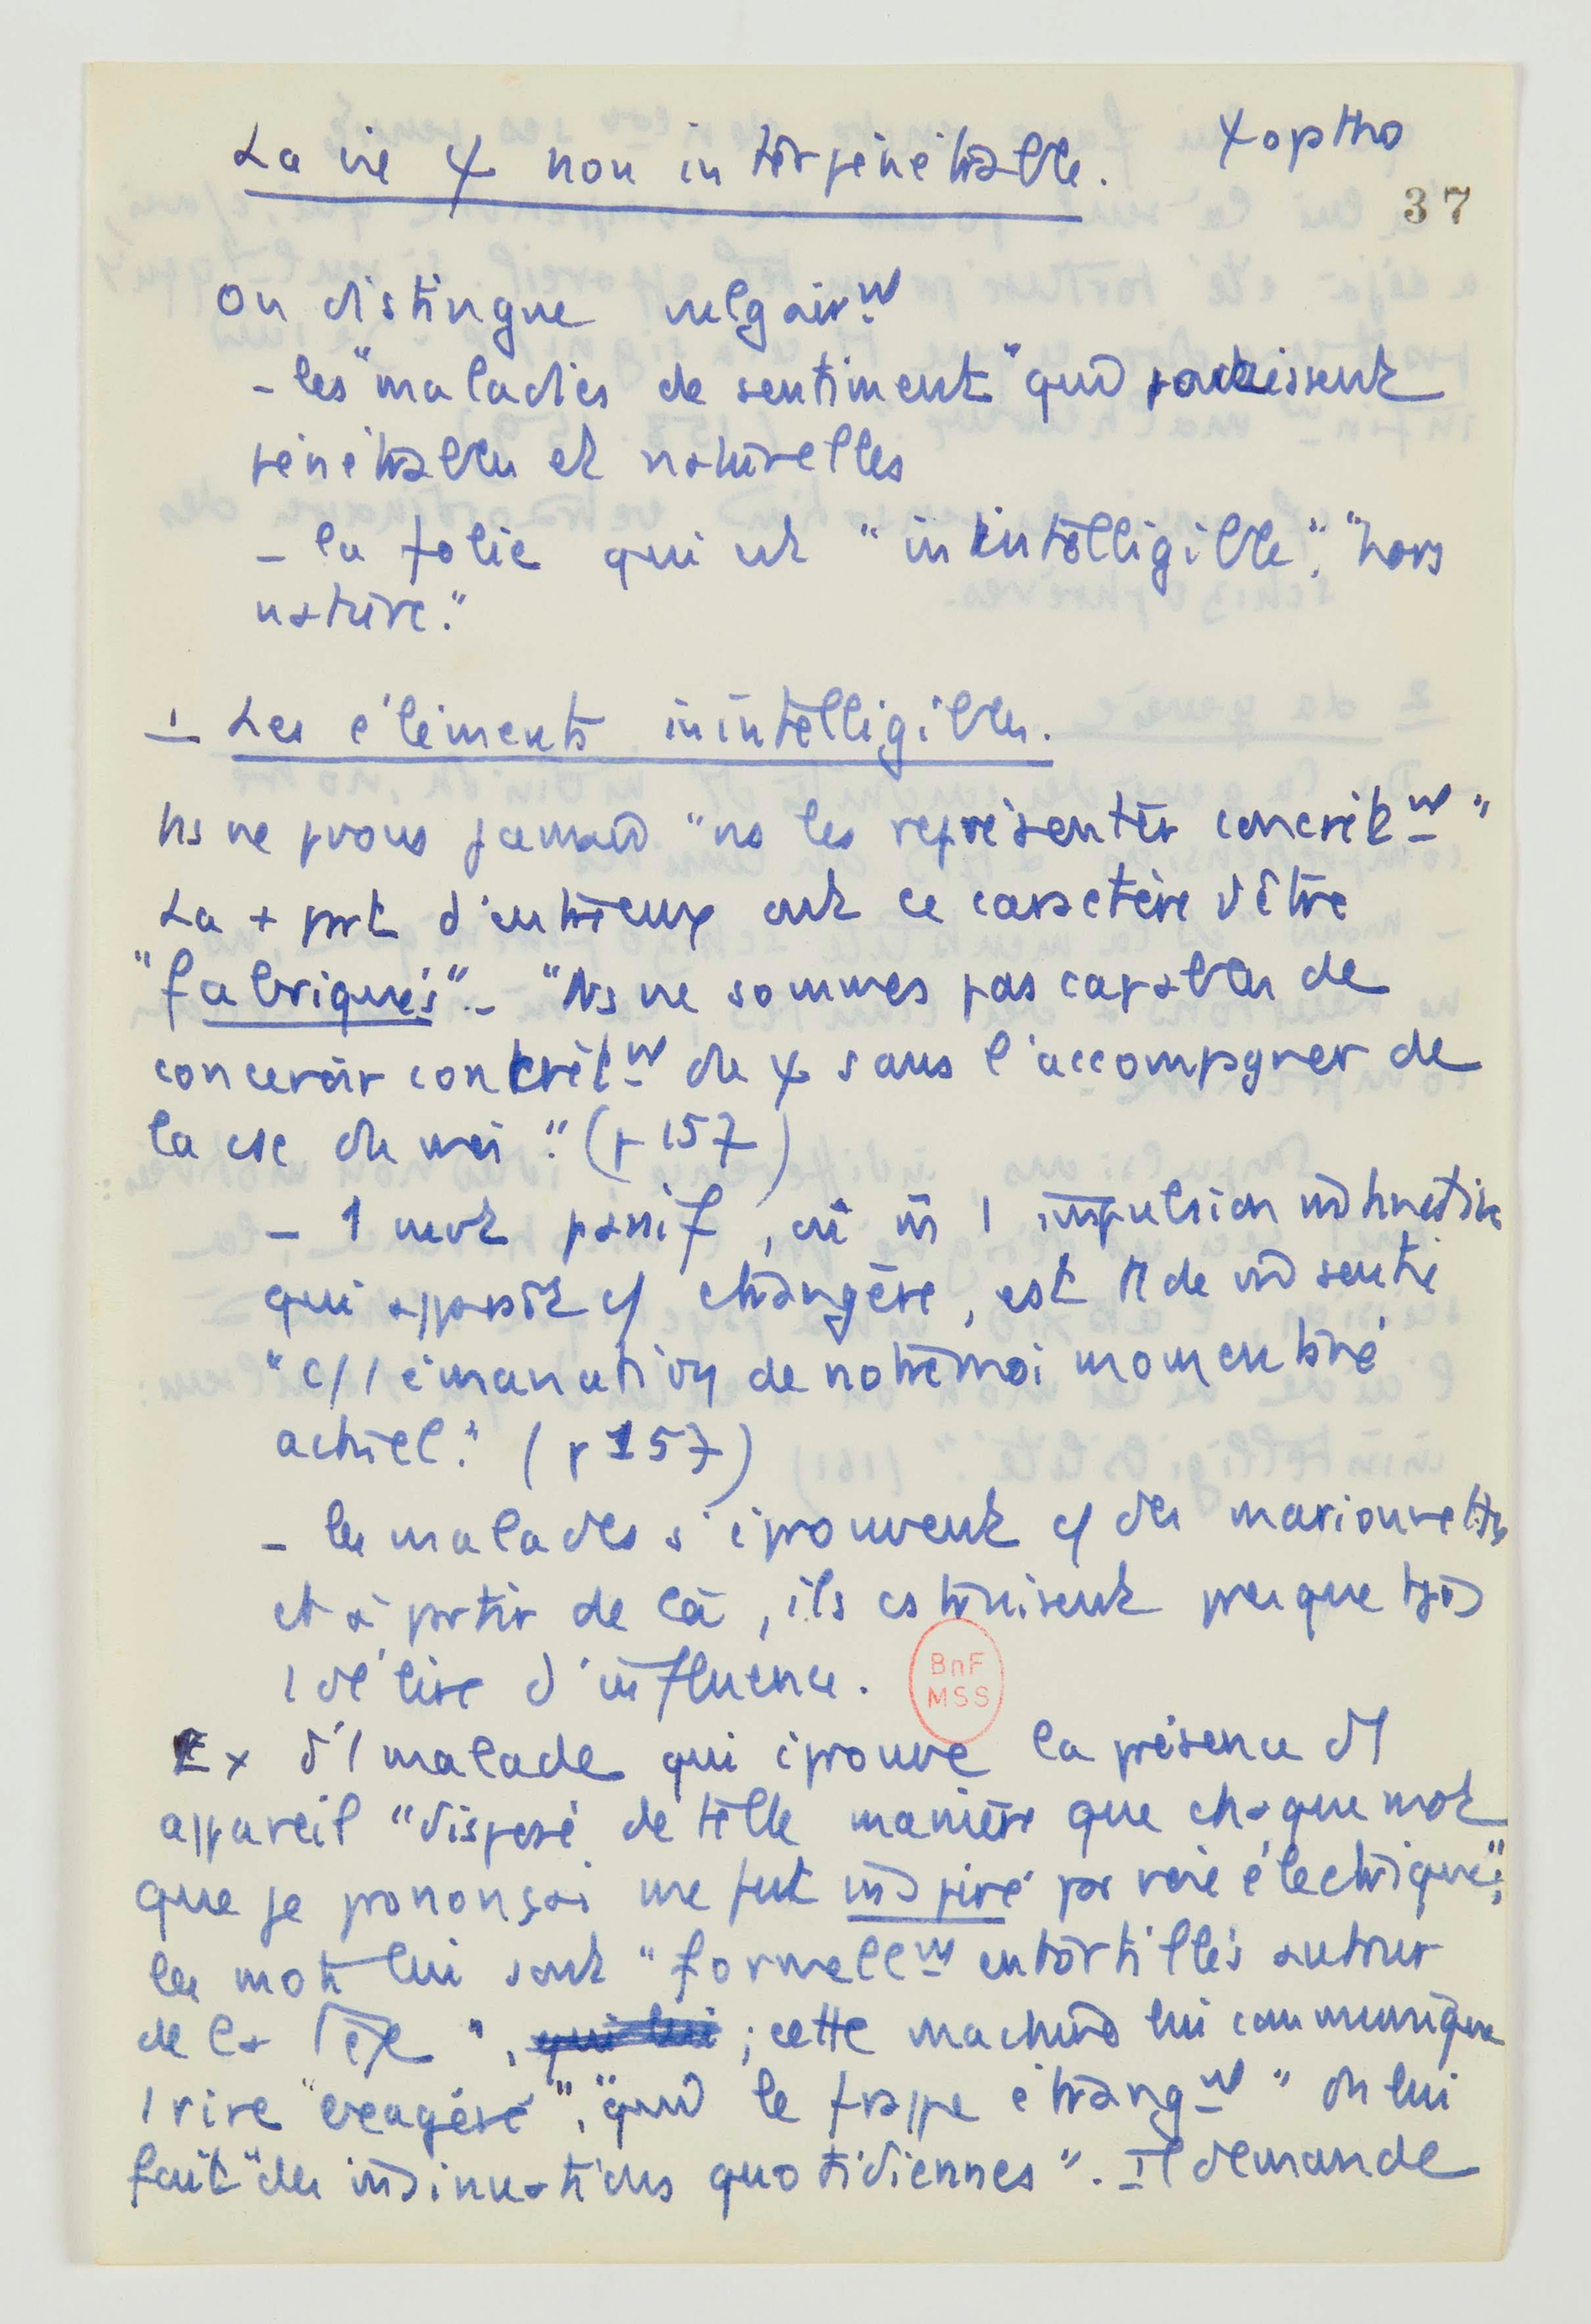 La vie ψ non interpénétrable. ψopatho
37
On distingue vulgairt
- les "maladies de sentiment" qui paraissent
pénétrables et naturelles
- la folie qui est "inintelligible", "hors
nature."
1 Les éléments inintelligibles.
Ns ne pvons jamais "ns les représenter concrètt"
La + part d'entre eux ont ce caractère d'être
"fabriqués" - "Ns ne sommes pas capables de
concevoir concrètt du ψ sans l'accompagner de
la csc du moi." (p 157)
- 1 mvt passif, ou m 1 impulsion instinctive
qui apparaît c/ étrangère, est de
"c/ 1 émanation de notre moi momentané
actuel." (p 157)
- les malades s'éprouvent c/ des marionnettes
et à partir de là, ils cstruisent presque tjs
1 délire d'influence.
Ex d'1 malade qui éprouve la présence d'1
appareil "disposé de telle manière que chaque mot
que je prononçai me fut inspiré par voie électrique";
les mots lui sont "formellt entortillés autour
de la tête", ; cette machine lui communique
1 rire "exagéré", "qui le frappe étrangt" on lui
fait "des insinuations quotidiennes". Il demande
BnF
MSS